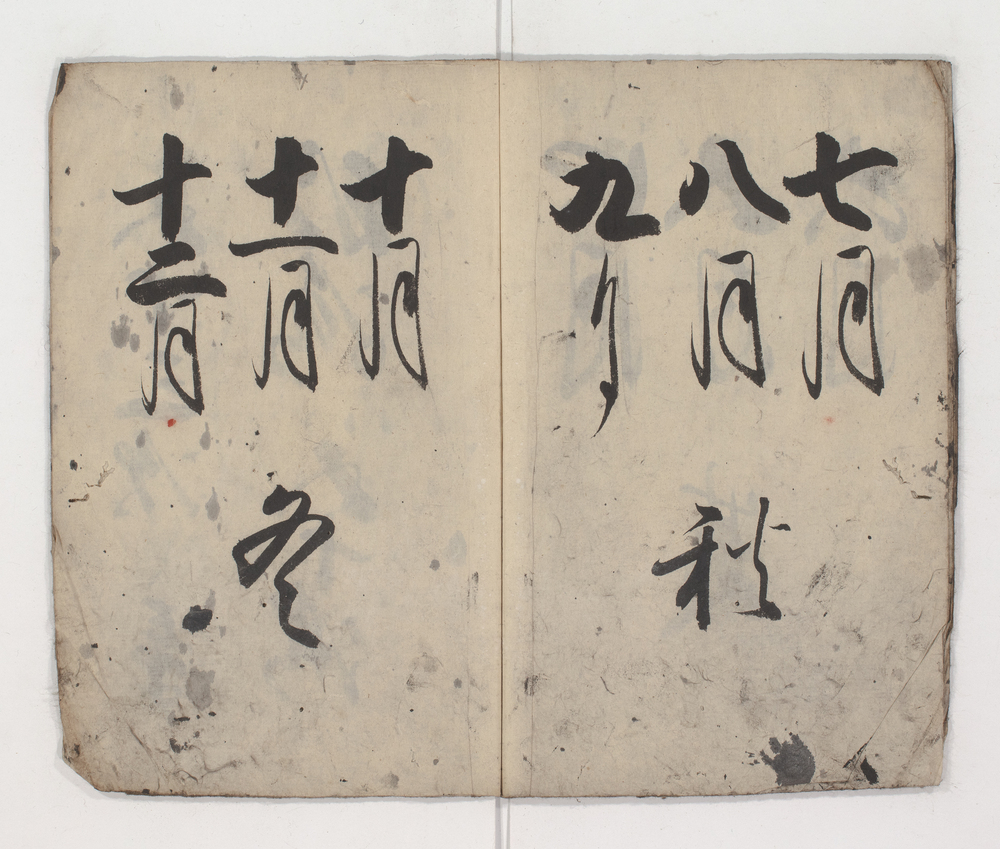 七月
八月
九月
秋
十月
十一月
十二月
冬